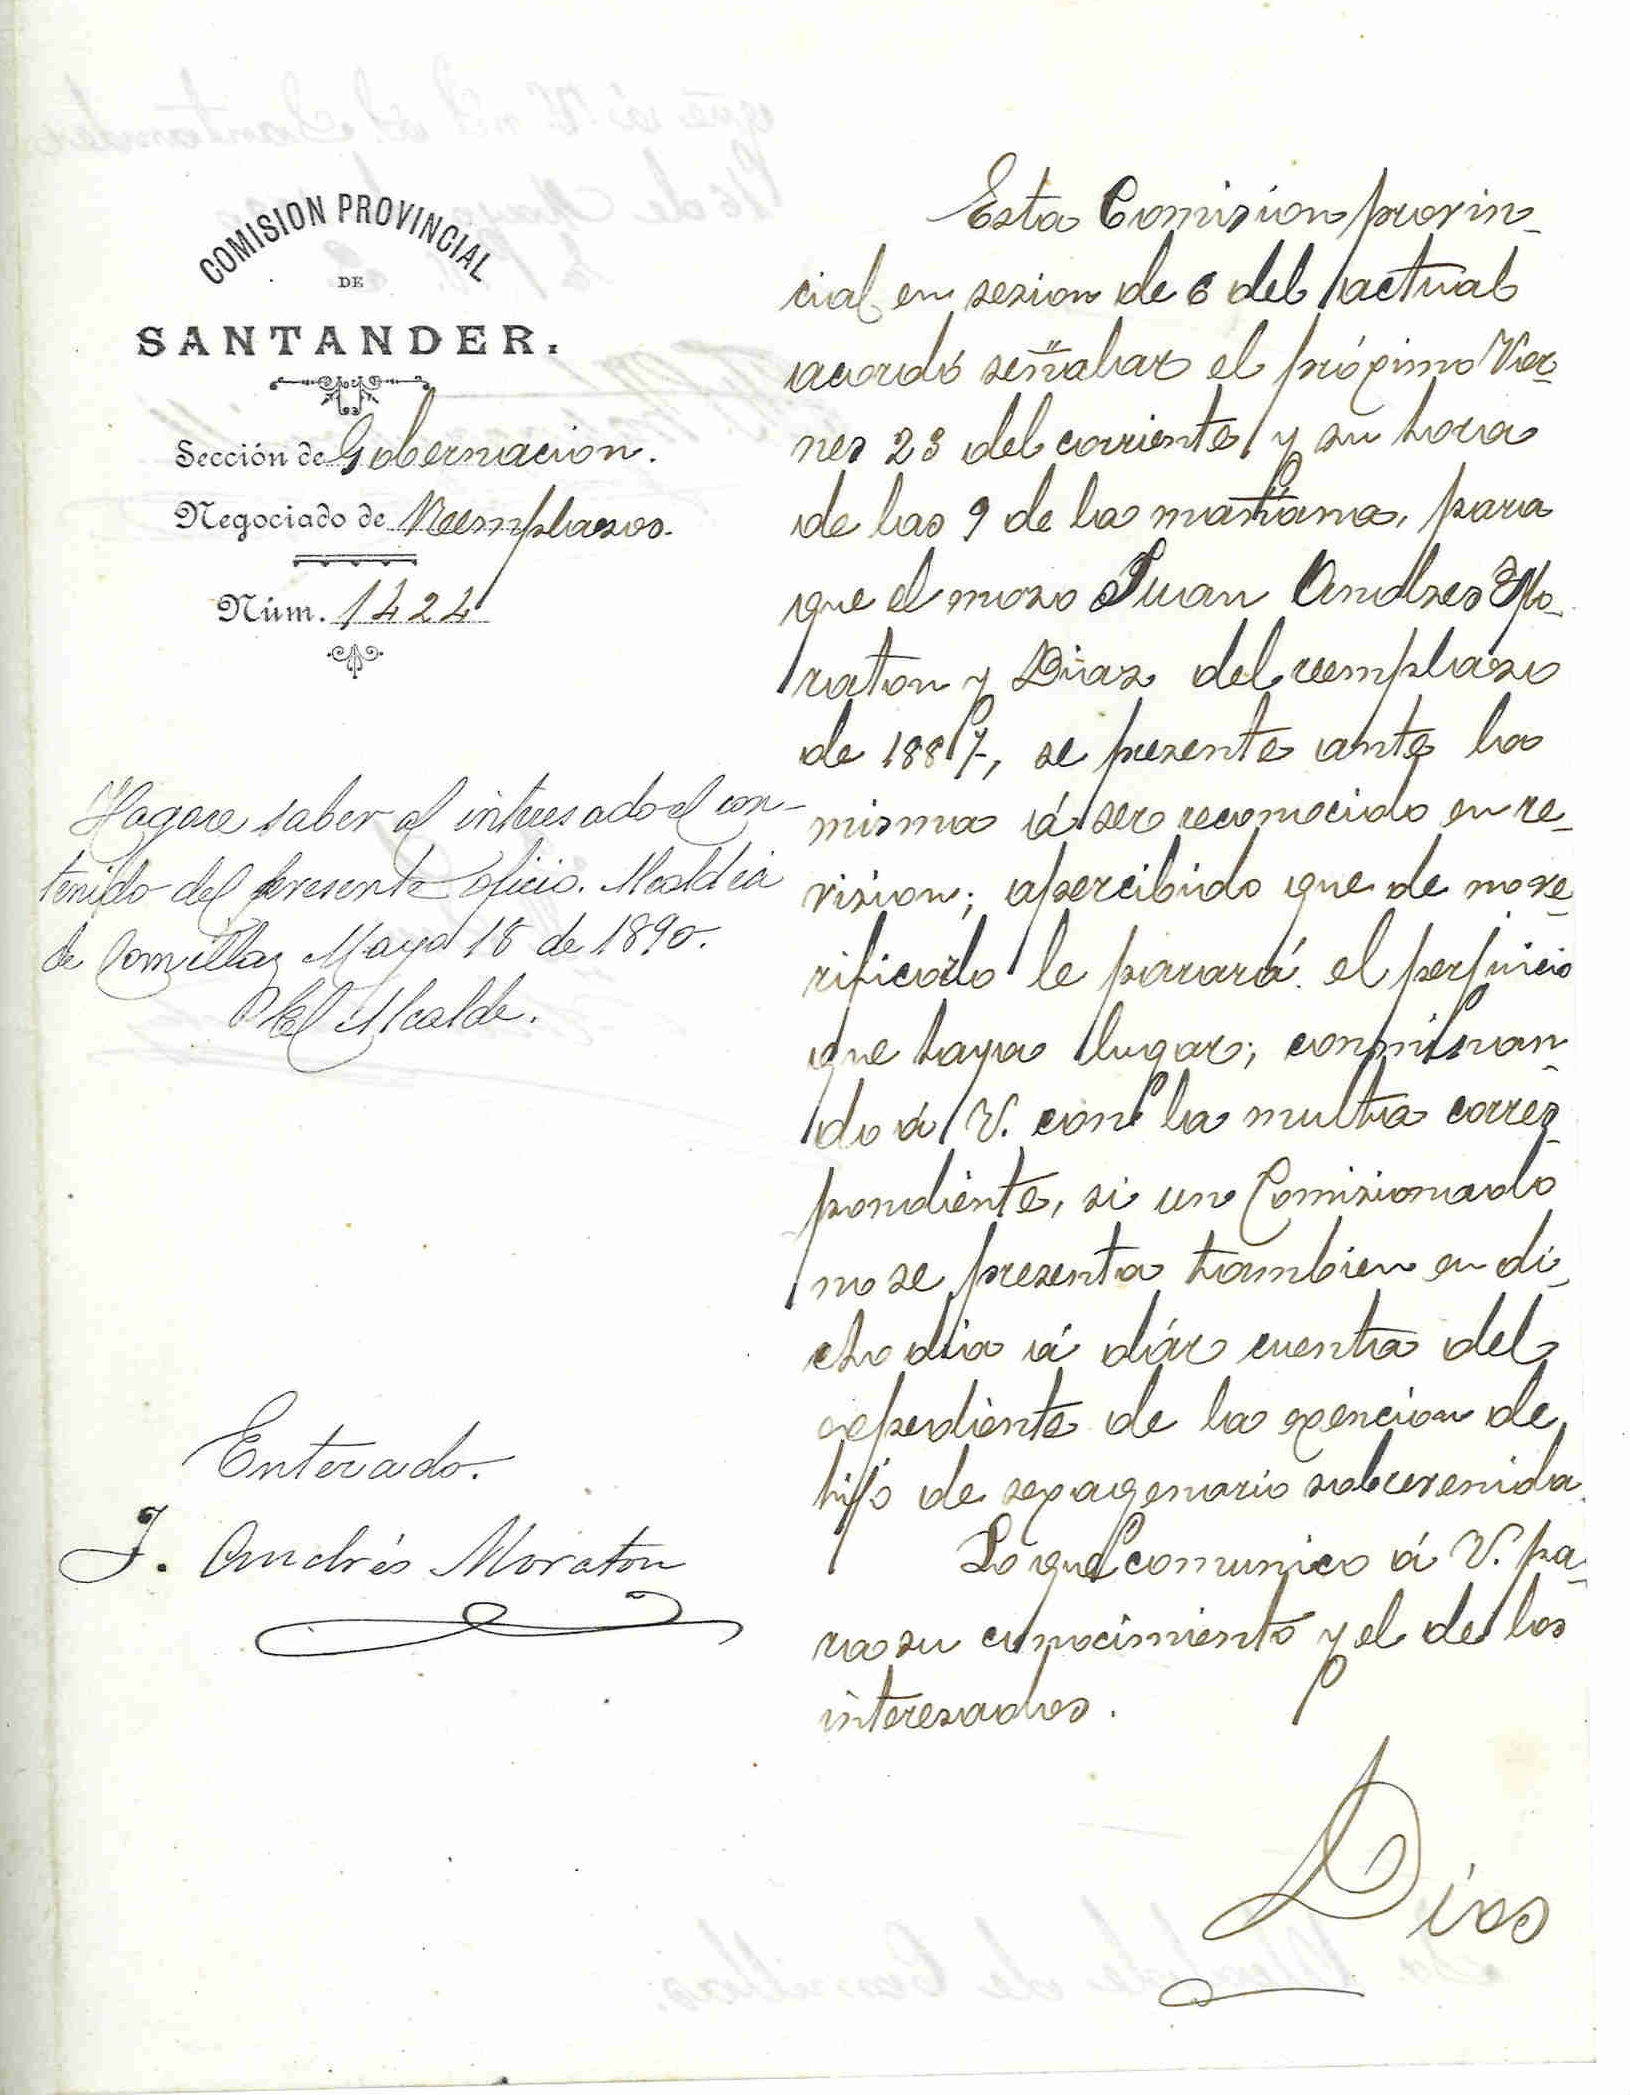 COMISION PROVINCIAL
DE
SANTANDER.
Sección de Gobernacion.
Negociado de Reemplazos.
Núm. 1424
Hagase saber al interesado el con-
tenido del presente oficio. Alcaldia
de Comillas Mayo 18 de 1890.
El Alcalde.
Enterado.
J. Andrés Moraton
Esta Comision provin-
cial en sesion de 6 del actual
acordó señalar el próximo Vier-
nes 23 del corriente y su hora
de las 9 de la mañana, para
que el mozo Juan Andres Mo-
raton y Diaz del reemplazo
de 1887, se presente ante la
misma á ser reconocido en re-
vision; apercibido que de no ve-
rificarlo le parará el perjuicio
que haya lugar; conminan-
do á V. con la multa corres-
pondiente, si un Comisionado
no se presenta tambien en di-
cho dia á dár cuenta del
expediente de la exencion de
hijo de sexagenario sobrevenida.
Lo que comunico á V. pa-
ra su conocimiento y el de los
interesados.
Dios